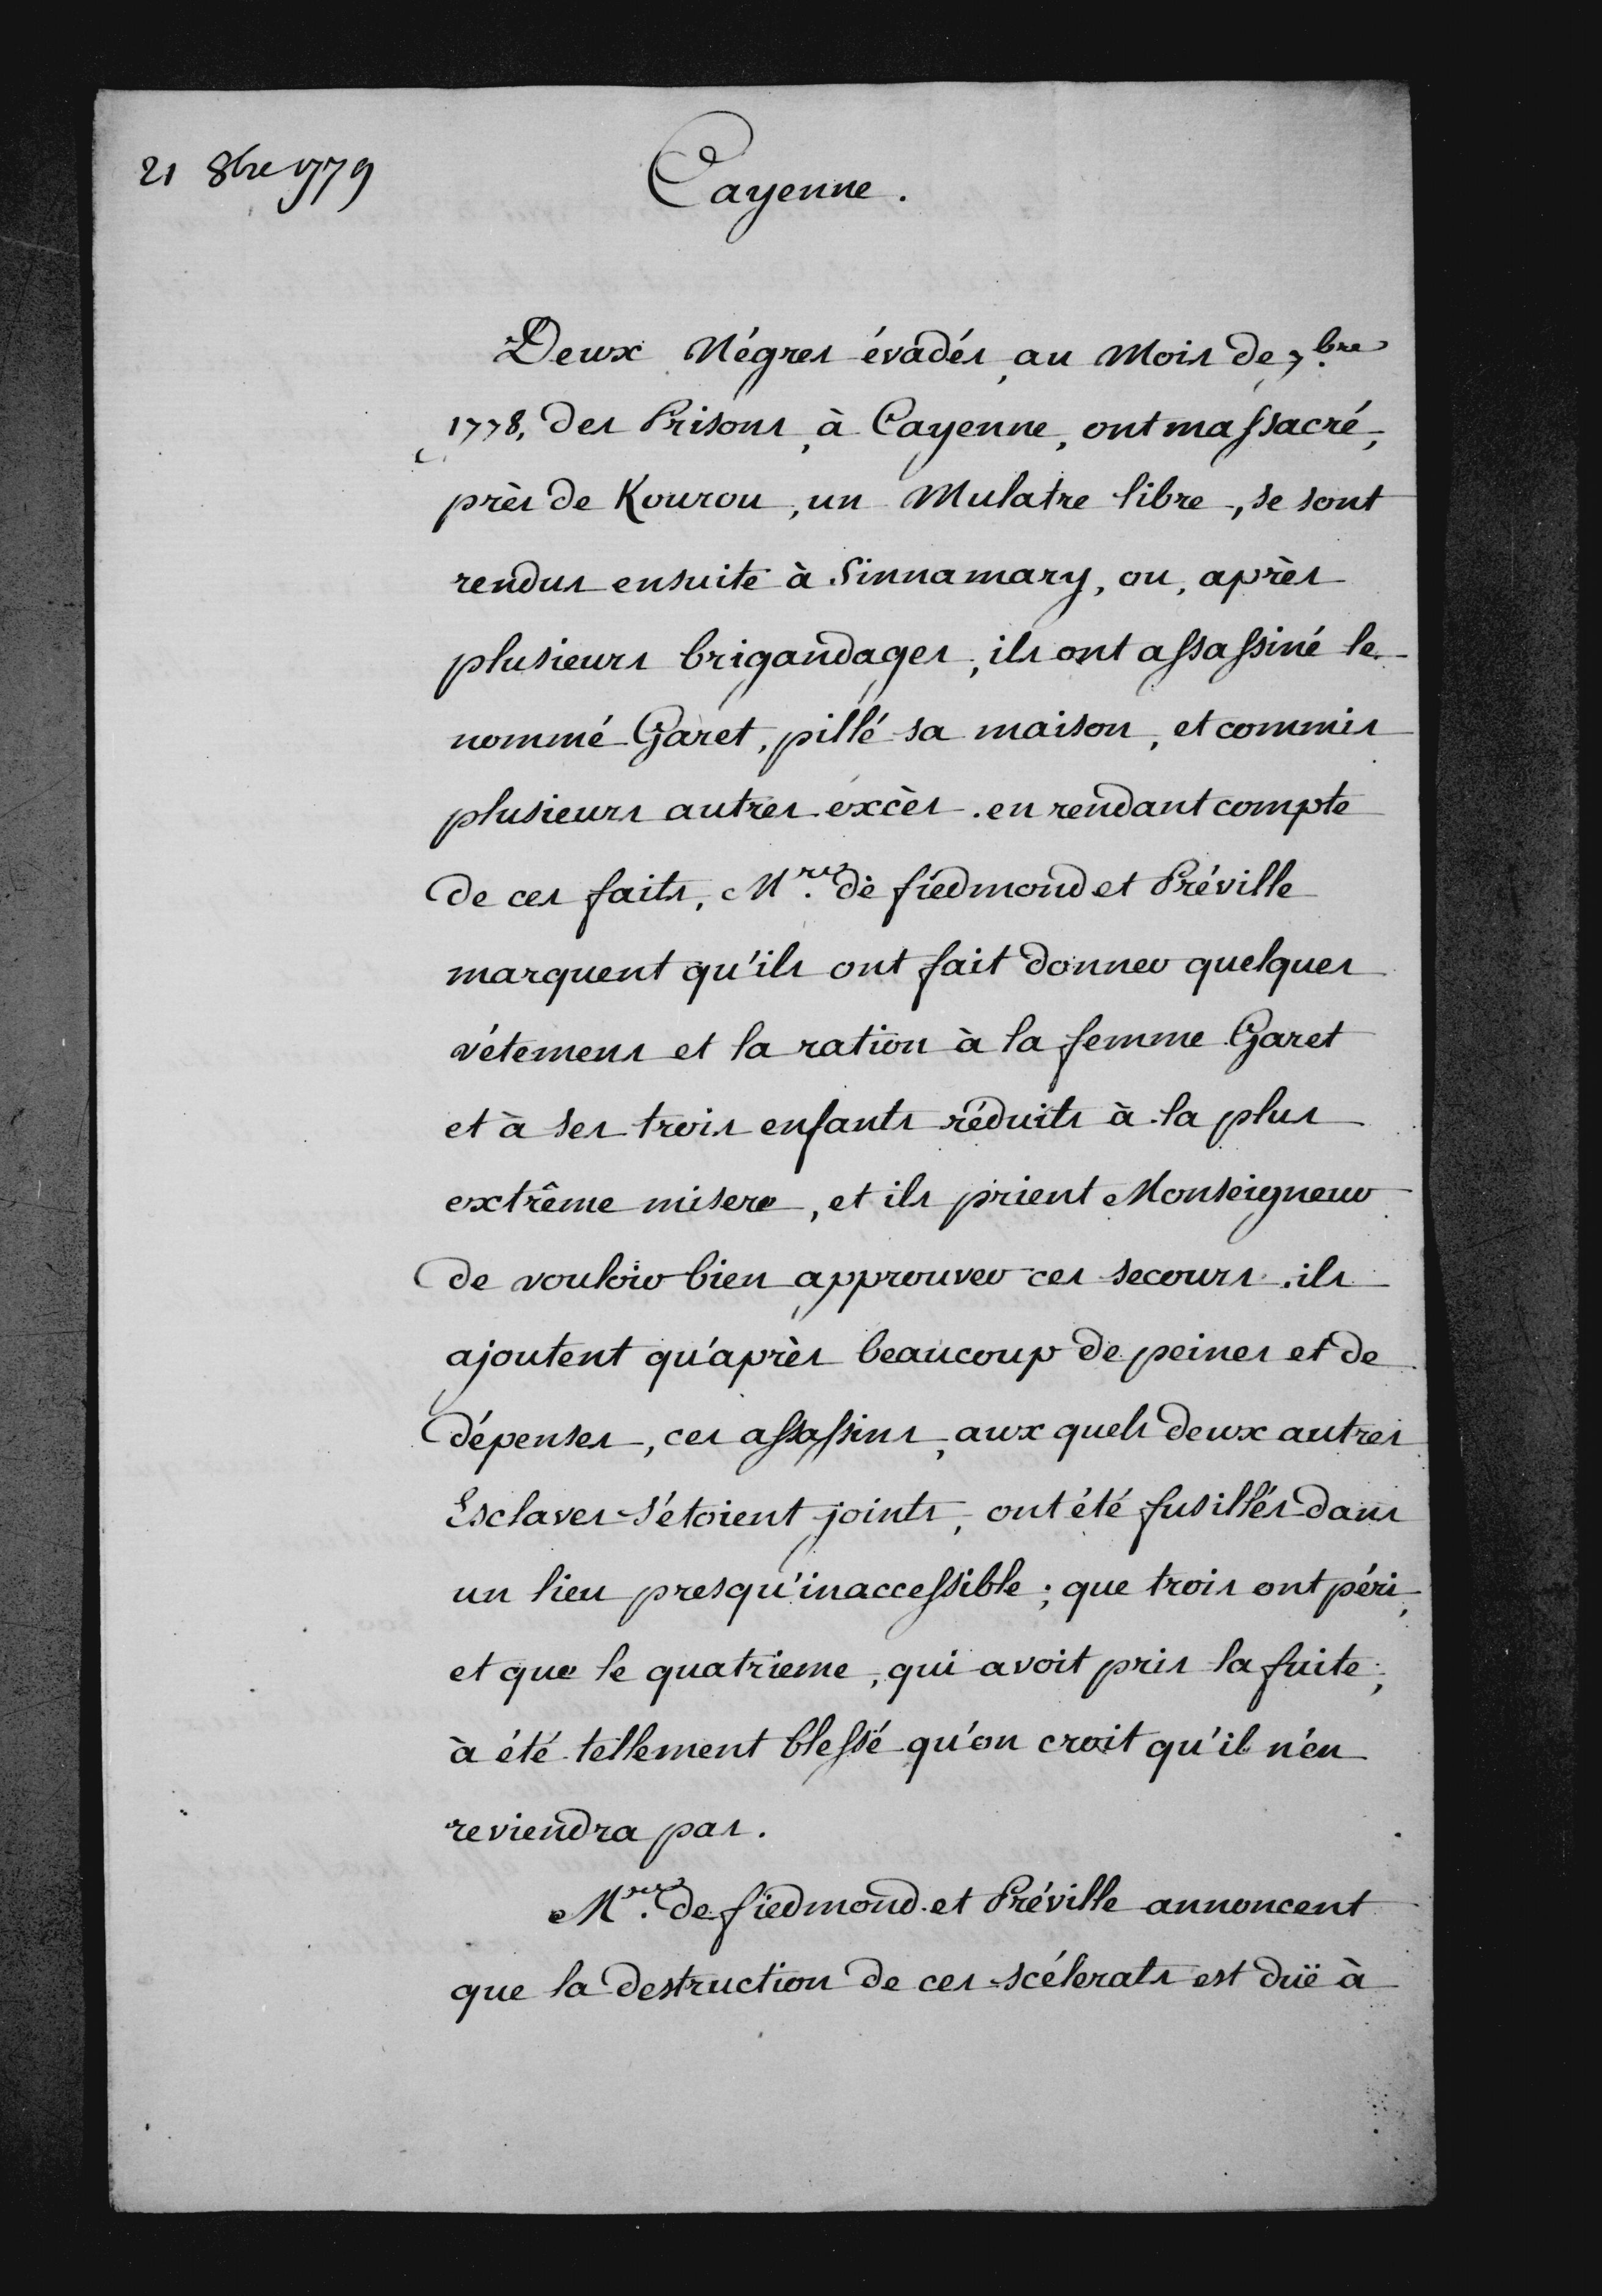 21 8bre 1779
Cayenne.
Deux Négres évadés, au Mois de 7.bre
1778, des Prisons, à Cayenne, ont massacré,
près de Kourou, un Mulatre libre, se sont
rendus ensuite à Sinnamary, ou, après
plusieurs brigandages, ils ont assassiné le
nommé Garet, pillé sa maison, et commis
plusieurs autres éxcès. en rendant compte
de ces faits, M.rs de fiedmond et Préville
marquent qu'ils ont fait donner quelques
vétemens et la ration à la femme Garet
et à ses trois enfants réduits à la plus
extrême misere, et ils prient Monseigneur
de vouloir bien approuver ces secours. ils
ajoutent qu'après beaucoup de peines et de
dépenses, ces assassins, aux quels deux autres
Esclaves s'étoient joints, ont été fusillés dans
un lieu presqu'inaccessible; que trois ont péri,
et que le quatrieme, qui avoit pris la fuite,
à été tellement blessé qu'on croit qu'il n'en
reviendra pas.
M.rs de fiedmond et Préville annoncent
que la destruction de ces scélerats est duë à